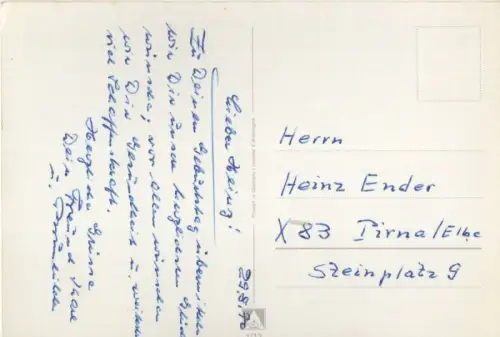 29.8.70
Lieber Heinz!
Zu Deinem Geburtstag übermitteln
wir Dir unsere herzlichsten Glück
wünsche; vor allem wünschen
wir Dir Gesundheit u. weiterhin
viel Schaffenskraft.
Herzliche Grüsse
Dein Freund
u.
Herrn
Heinz Ender
X 83 Pirna/Elbe
Steinplatz 9